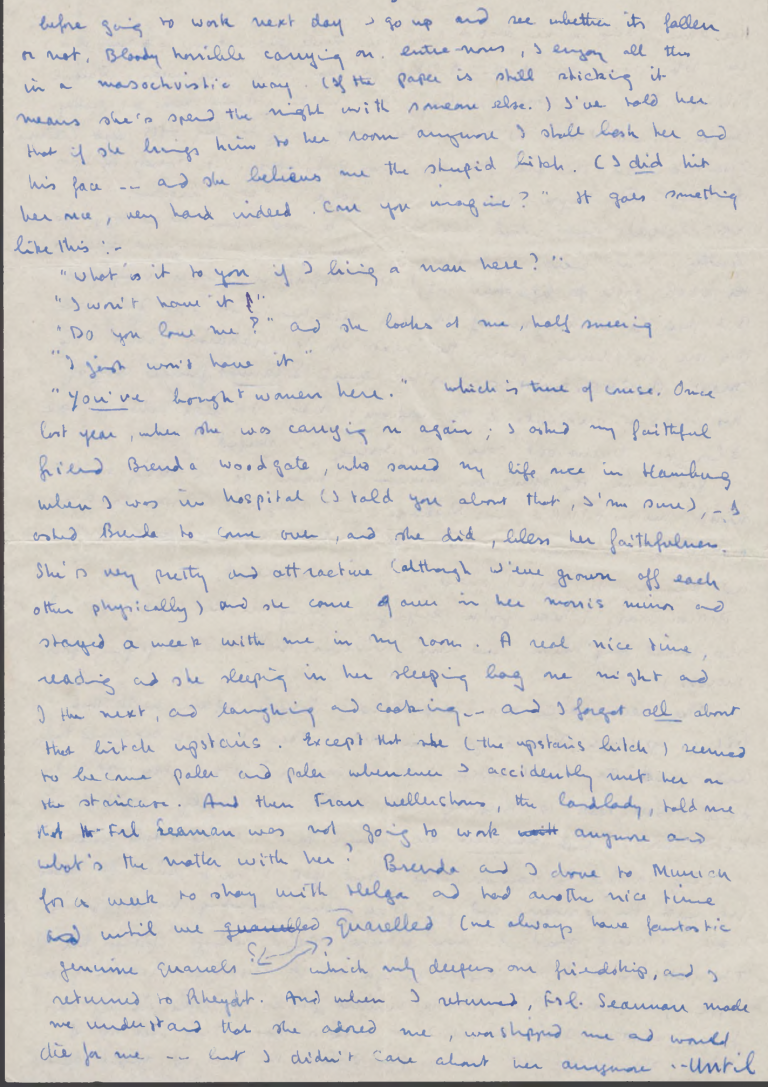 before going to work next day I go up and see whether its fallen
or not. Bloody horrible carrying on. entre-nous, I enjoy all this
in a masochvistic way. (If the paper is still sticking it
means she's spend the night with someone else.) I've told her
that if she brings him to her room anymore I shall bash her and
his face -- and she believes me the stupid bitch. (I did hit
her once, very hard indeed. Can you imagine?" It goes something
like this:-
"What is it to you if I bring a man here?"
"I won't have it!"
"Do you love me?" and she looks at me, half sneering
"I just won't have it"
"You've bought women here." Which is true of course. Once
last year, when she was carrying on again; I asked my faithful
friend Brenda Woodgate, who saved my life once in Hamburg
when I was in hospital (I told you about that, I'm sure), - I
asked Brenda to come over, and she did, bless her faithfulness.
She's very pretty and attractive (although we've grown off each
other physically) and she came over in her morris minor and
stayed a week with me in my room. A real nice time,
reading and she sleeping in her sleeping bag one night and
I the next, and laughing and cooking -- and I forgot all about
that bitch upstairs. Except that she (the upstairs bitch) seemed
to become paler and paler whenever I accidently met her on
the staircase. And then Frau Wellershaus, the landlady, told me
that Frl Seaman was not going to work anymore and
what's the matter with her? Brenda and I drove to Munich
for a week to stay with Helga and had another nice time
until we quarelled quarelled (we always have fantastic
genuine quarrels which only deepens our friendship, and I
returned to Rheydt. And when I returned, Frl. Seaman made
me understand that she adored me, worshipped me and would
die for me -- but I didn't care about her anymore -- Until